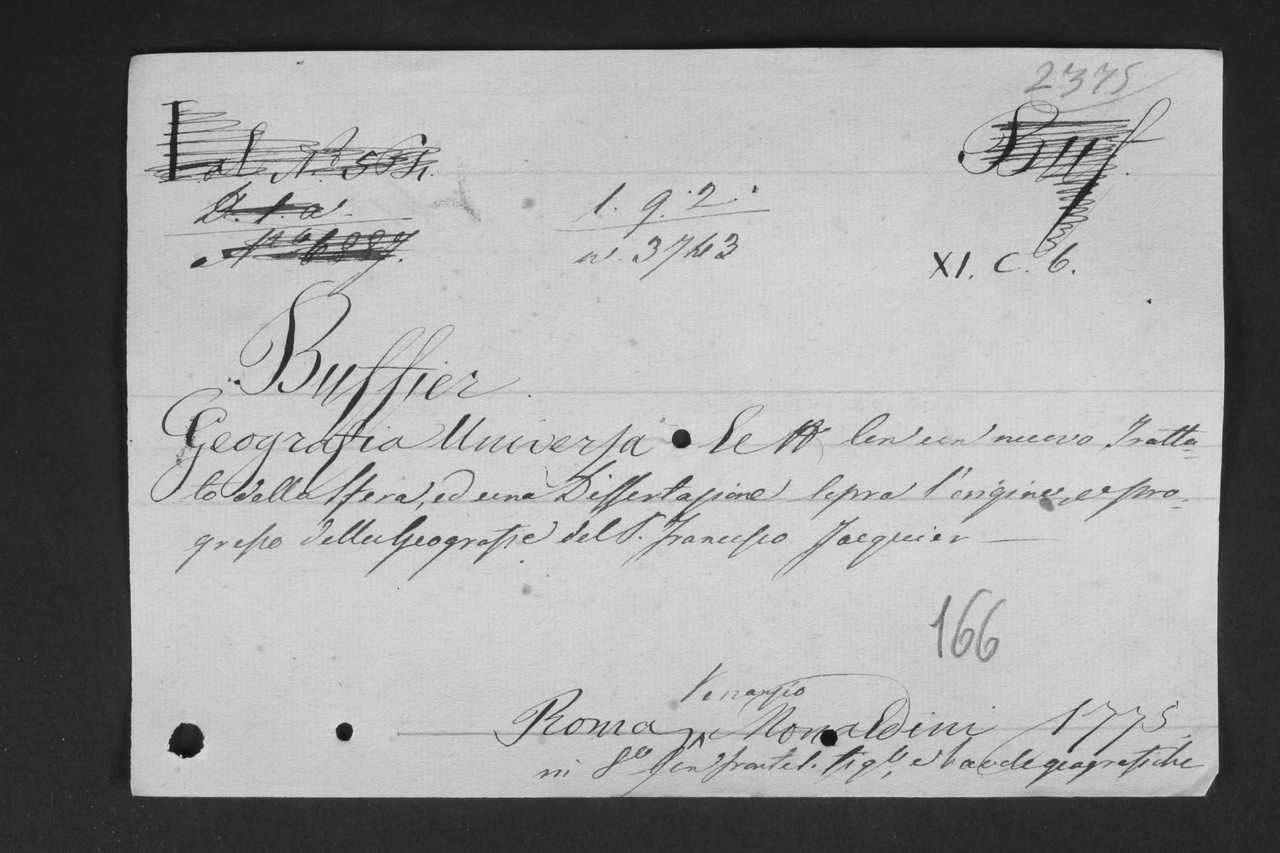 2375
Buf.
1. 9. 2.
n. 3743
XI. C. 6.
Buffier
Geografia Universa
con un nuovo Tratta=
to della Sfera, ed una Dissertazione sopra l'origine, e pro=
gresso della Geografia del P. Francesco Jacquier
166
Venanzio
Roma Monaldini 1775
in 8º con frontel. fig. e tavole geografiche